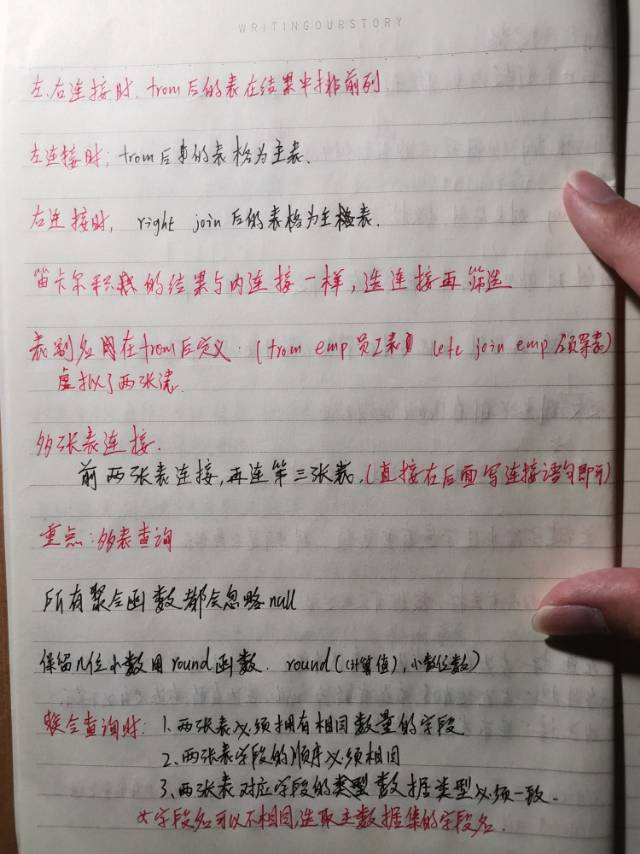 WRITINGOURSTORY
左.右连接时.from后的表在结果中排前列
左连接时;from后的表格为主表.
右连接时, right join后的表格为主表.
笛卡尔积的结果与内连接一样,连接再筛选
表别名用在from后定义.(from emp 员工表 left join emp 领导表)
虚拟了两张
多张表连接.
前两张表连接,再连第三张表,(直接在后面写连接语句即可)
重点:多表查询
所有聚合函数都会忽略null
保留几位小数用round函数. round(计算值),小数位数)
联合查询时: 1.两张表必须拥有相同数量的字段
2.两张表字段的顺序必须相同
3.两张表对应字段的类型数据类型必须一致.
字段名可以不相同,选取主数据集的字段名.